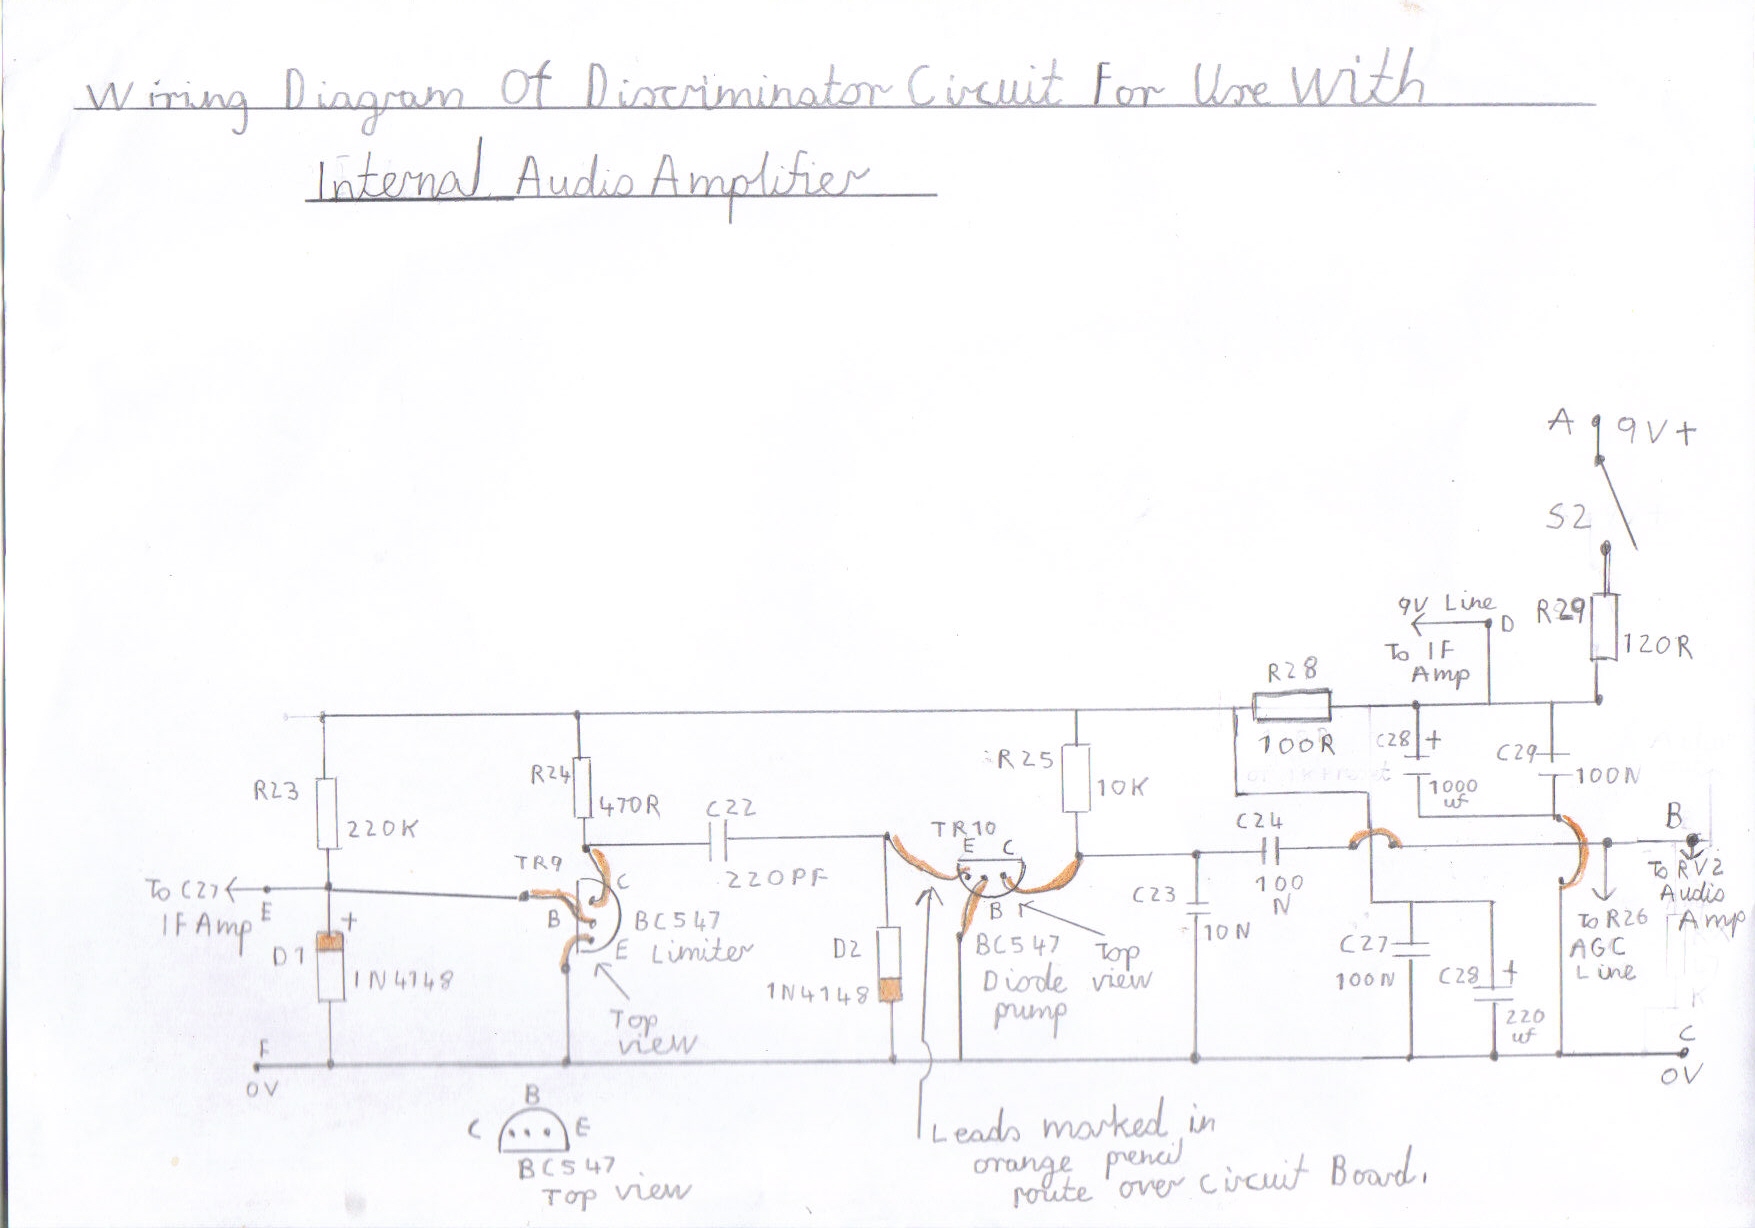 Wiring Diagram Of Discriminator Circuit For Use With
Internal Audio Amplifier
A 9V+
S2
9V Line
D
R29
To IF
Amp
120R
R28
100R
C28 +
1000
uf
C29
100N
R23
220K
R24
470R
C22
220PF
TR10
E C
B
R25
10K
C24
100
N
B
To RV2
Audio
Amp
TR9
C
B
E
BC547
Limiter
To C27
IF Amp
E
+
D1
1N4148
Top
view
D2
1N4148
BC547
Diode
pump
Top
view
C23
10N
C27
100N
C28 +
220
uf
To R26
AGC
Line
F
0V
C
0V
B
C E
BC547
Top view
Leads marked in
orange pencil
route over circuit Board.